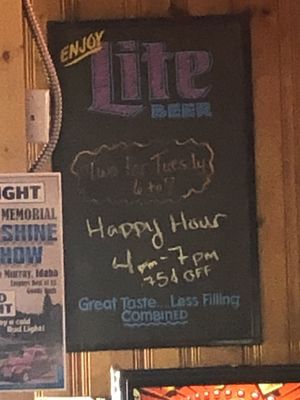 ENJOY
Lite
BEER
Two for Tuesday
6 to 7
Happy Hour
4pm-7pm
75¢ OFF
Great Taste...Less Filling
COMBINED
GHT
MEMORIAL
SHINE
OW
Murray, Idaho
a cold
Bud Light!